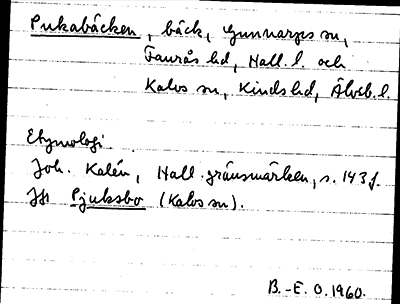 Pukabäcken, bäck, Gunnarps sn,
Faurås hd, Hall. l. och
Kalvs sn, Kinds hd, Älvsb. l.
Etymologi.
Joh. Kalén, Hall. gränsmärken, s. 143 f.
Jfr Pjuksbo (Kalvs sn).
B.-E. O. 1960.